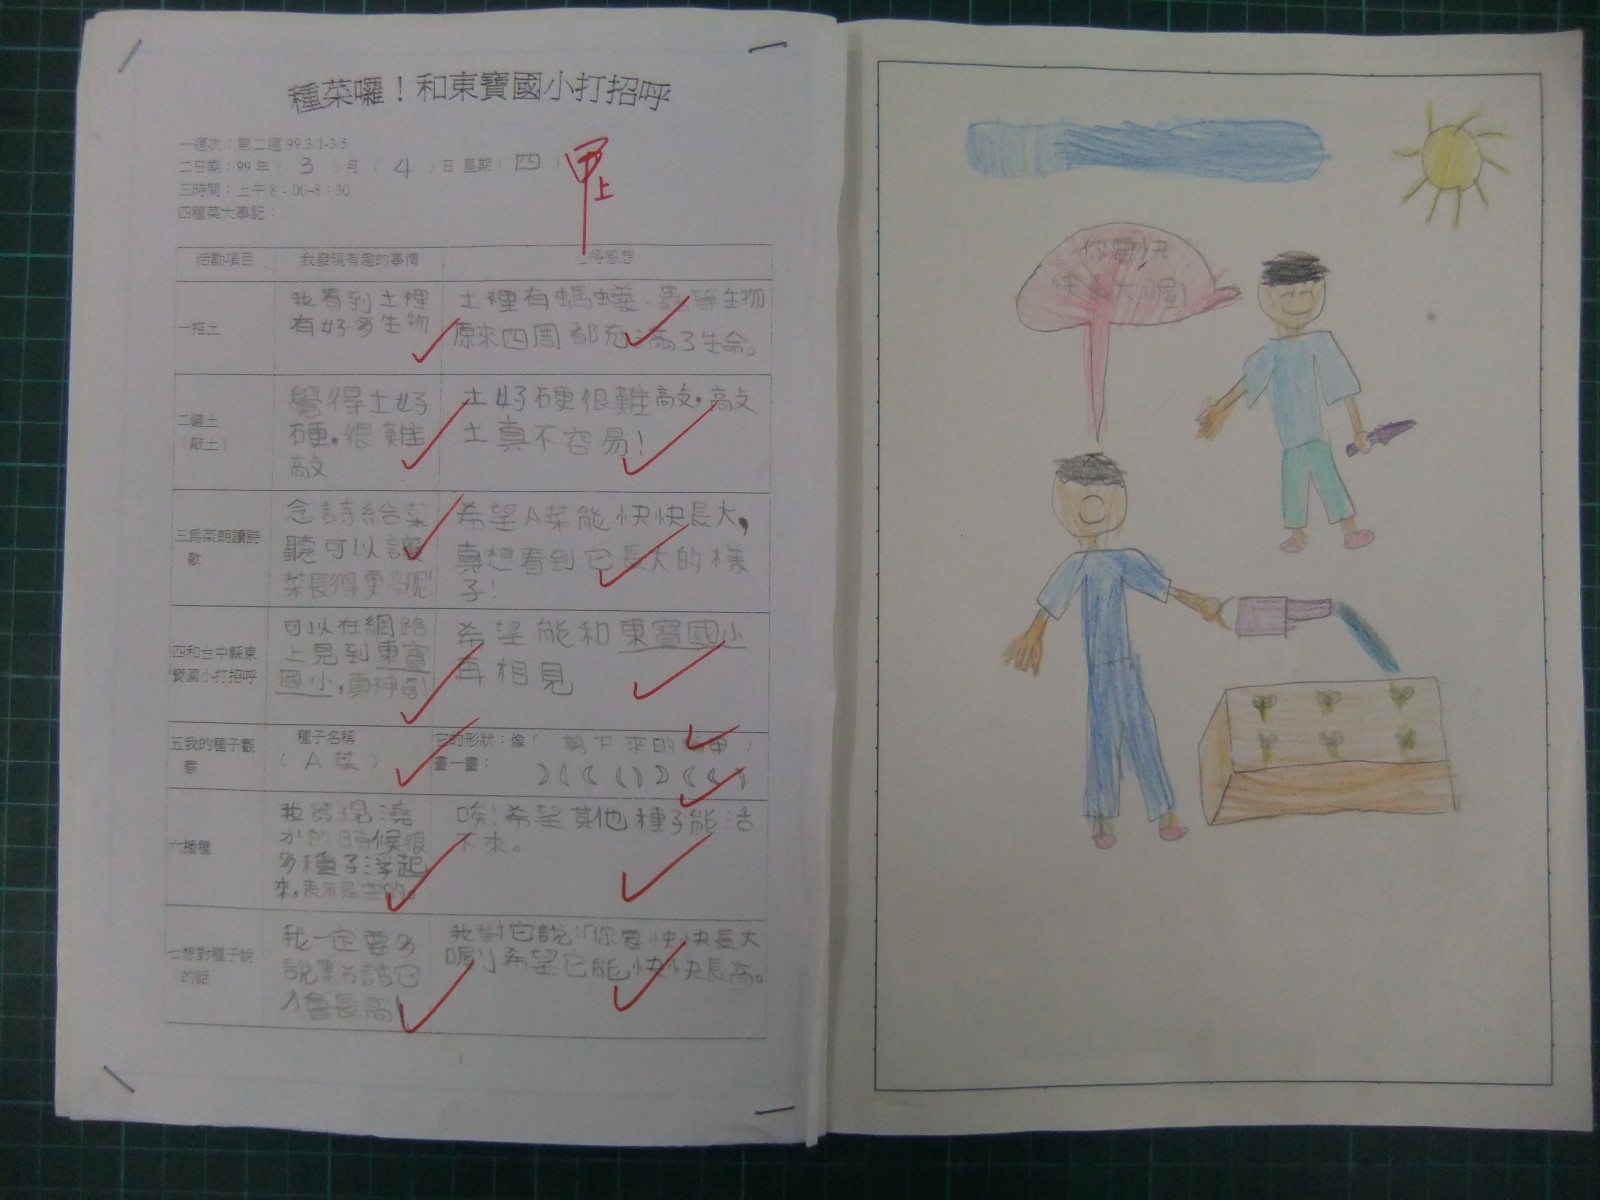 種菜囉！和東寶國小打招呼
一週次：第二週 99.3/1-3/5
二日期：99年（3）月（4）日 星期（四）
三時間：上午8：00-8：30
四種菜大事記：
甲上
活動項目
我發現有趣的事情
得感想
一挖土
我看到土裡
有好多生物
土裡有螞蟻、
生物
原來四周都充滿了生命。
二
（敲土）
覺得土好
硬，很難
敲
土好硬很難敲，敲
土真不容易！
三為菜朗讀詩
歌
念詩給菜
聽可以讓
菜長得更高呢
希望A菜能快快長大，
真想看到它長大的樣
子！
四和台中縣東
寶國小打招呼
可以在網路
上見到東寶
國小，真神奇
希望能和東寶國小
再相見
五我的種子觀
察
種子名稱
（A菜）
它的形狀：像（剪下來的指甲）
畫一畫：
六播種
我發現澆
水的時候很
多種子浮起
來，表示是空的。
唉！希望其他種子能活
下來。
七想對種子說
的話
我一定要多
說鼓勵話它
才會長高！
我對它說：「你要快快長大
喔！」希望它能快快長高。
1
你要快
快長大喔